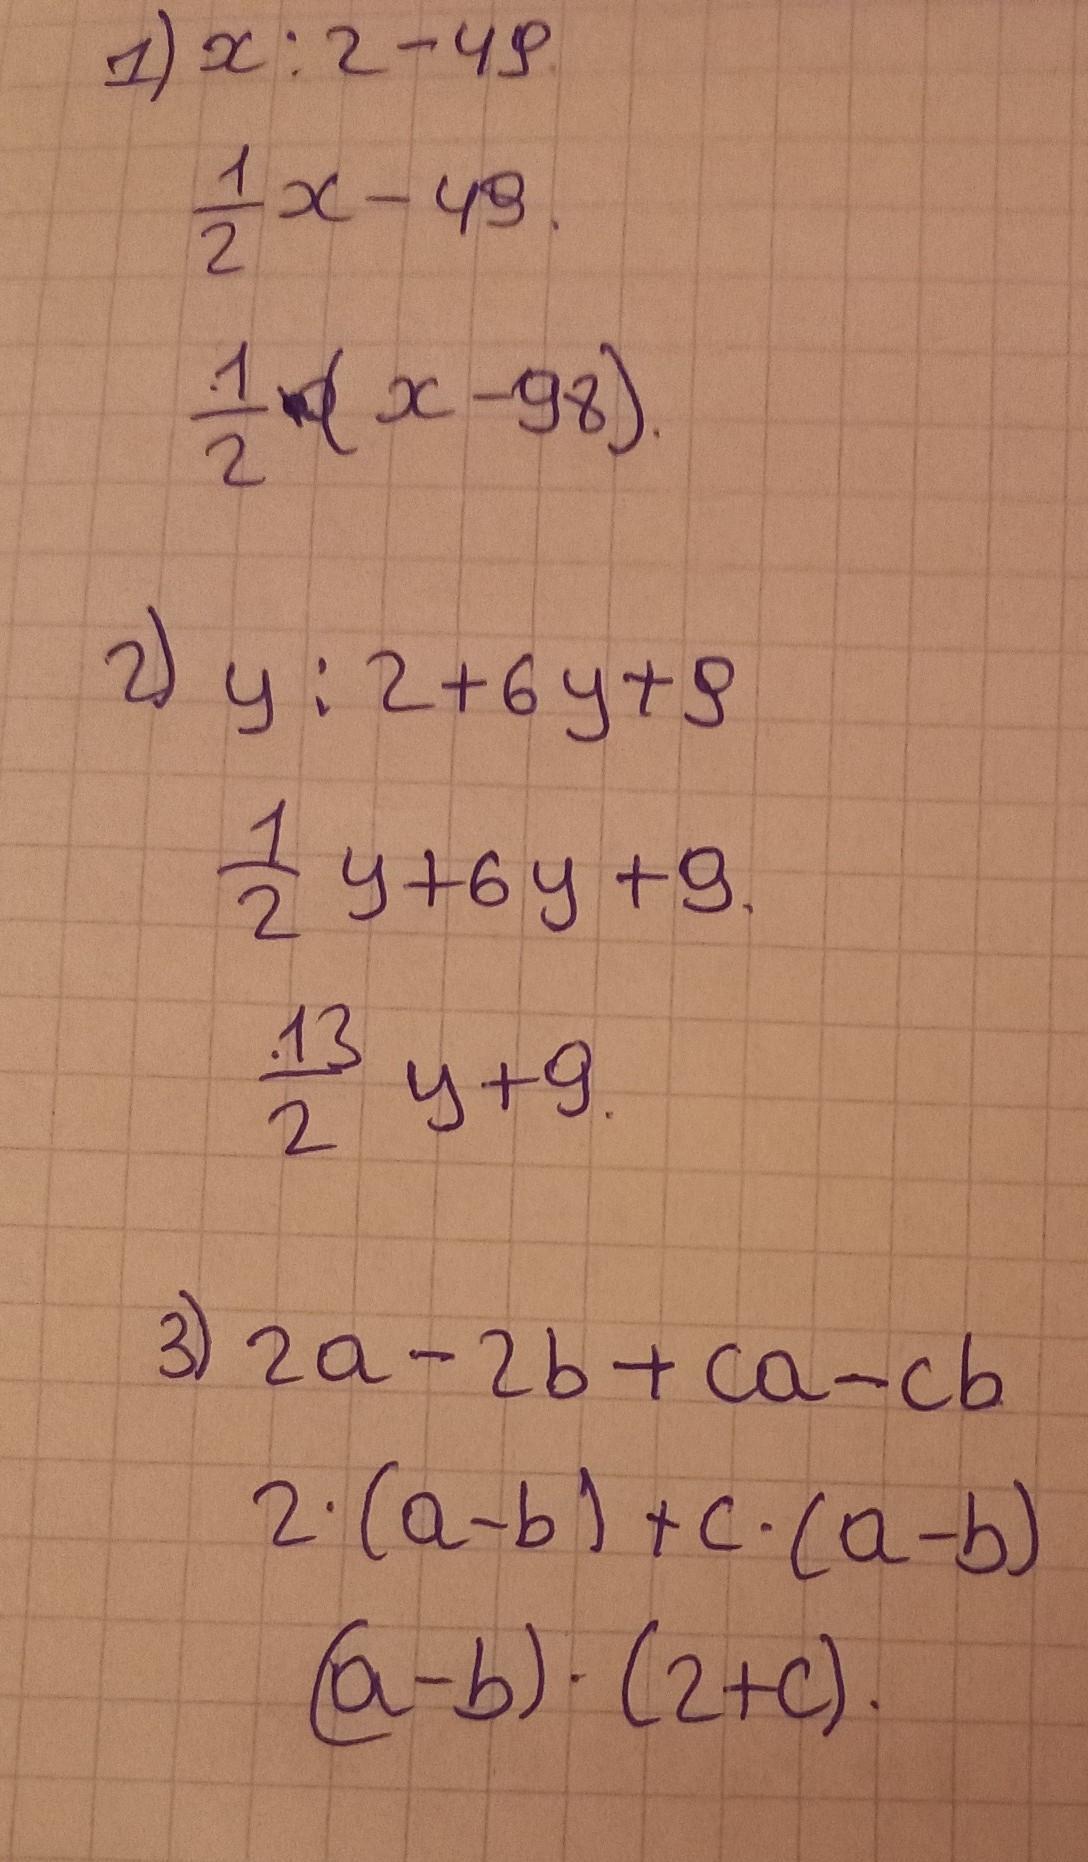 1) x : 2 - 49.
1/2 x - 49.
1/2 (x - 98).
2) y : 2 + 6y + 9
1/2 y + 6y + 9.
13/2 y + 9.
3) 2a - 2b + ca - cb
2·(a-b) + c·(a-b)
(a-b)·(2+c).